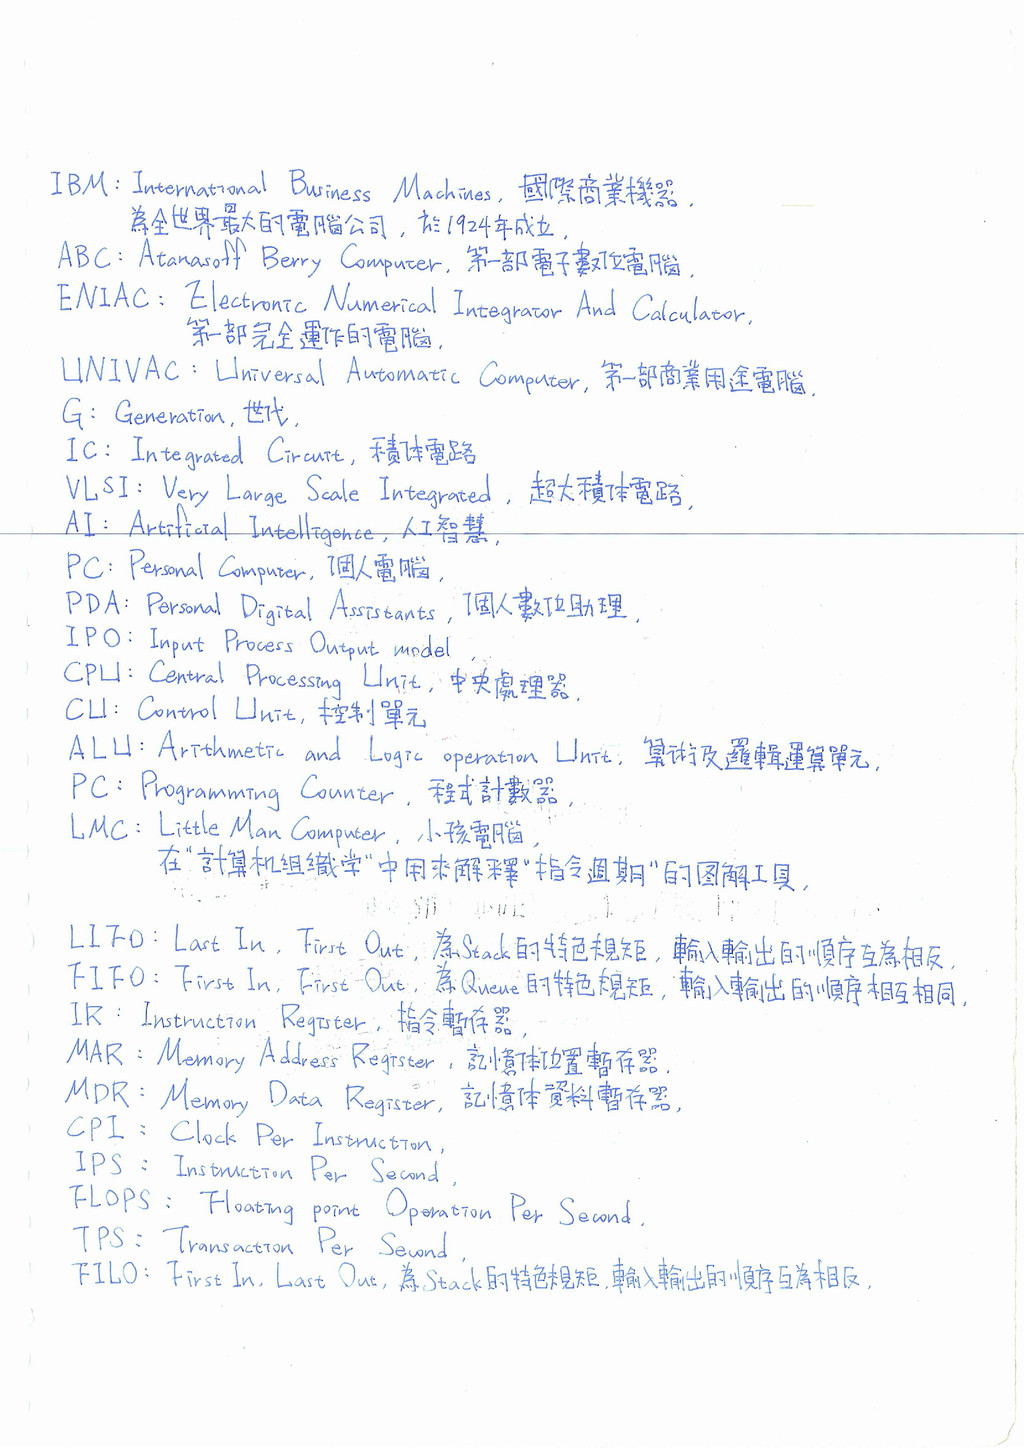 IBM: International Business Machines, 國際商業機器.
為全世界最大的電腦公司, 於1924年成立.
ABC: Atanasoff Berry Computer, 第一部電子數位電腦.
ENIAC: Electronic Numerical Integrator And Calculator.
第一部完全運作的電腦.
UNIVAC: Universal Automatic Computer, 第一部商業用途電腦.
G: Generation, 世代.
IC: Integrated Circuit, 積体電路
VLSI: Very Large Scale Integrated, 超大積体電路.
AI: Artificial Intelligence, 人工智慧.
PC: Personal Computer, 個人電腦.
PDA: Personal Digital Assistants, 個人數位助理.
IPO: Input Process Output model.
CPU: Central Processing Unit, 中央處理器.
CU: Control Unit, 控制單元
ALU: Arithmetic and Logic operation Unit, 算術及邏輯運算單元.
PC: Programming Counter, 程式計數器.
LMC: Little Man Computer, 小孩電腦.
在"計算机组織学"中用來解釋"指令週期"的图解工具.
LIFO: Last In, First Out, 為Stack的特色規矩, 輸入輸出的順序互為相反.
FIFO: First In, First Out, 為Queue的特色規矩, 輸入輸出的順序相互相同.
IR: Instruction Register, 指令暫存器.
MAR: Memory Address Register, 記憶体位置暫存器.
MDR: Memory Data Register, 記憶体資料暫存器.
CPI: Clock Per Instruction.
IPS: Instruction Per Second.
FLOPS: Floating point Operation Per Second.
TPS: Transaction Per Second.
FILO: First In, Last Out, 為Stack的特色規矩, 輸入輸出的順序互為相反.